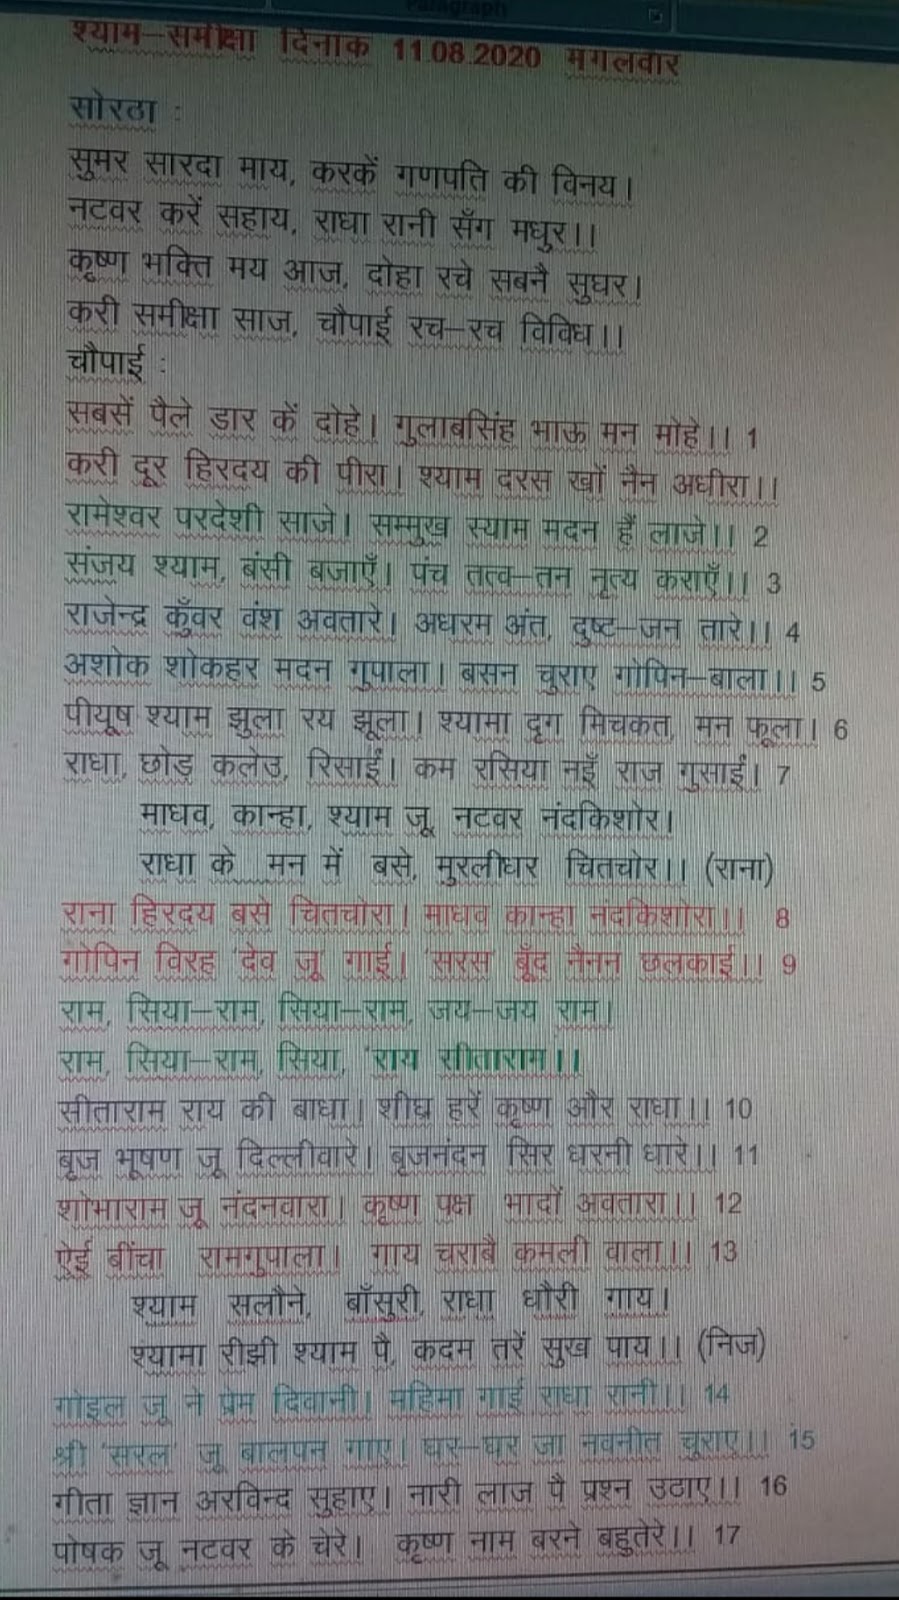 Paragraph
श्याम–समीक्षा दिनाक 11.08.2020 मगलवार
सोरठा :
सुमर सारदा माय, करकें गणपति की विनय।
नटवर करें सहाय, राधा रानी सँग मधुर।।
कृष्ण भक्ति मय आज, दोहा रचे सबनै सुघर।
करी समीक्षा साज, चौपाई रच–रच विविध।।
चौपाई :
सबसें पैले डार कें दोहे। गुलाबसिंह भाऊ मन मोहे।। 1
करी दूर हिरदय की पीरा। श्याम दरस खों नैन अधीरा।।
रामेश्वर परदेशी साजे। सम्मुख स्याम मदन हैं लाजे।। 2
संजय श्याम, बंसी बजाएँ। पंच तत्व–तन नृत्य कराएँ।। 3
राजेन्द्र कुँवर वंश अवतारे। अधरम अंत, दुष्ट–जन तारे।। 4
अशोक शोकहर मदन गुपाला। बसन चुराए गोपिन–बाला।। 5
पीयूष श्याम झुला रय झूला। श्यामा दृग मिचकत, मन फूला। 6
राधा, छोड़ कलेउ, रिसाईं। कम रसिया नइँ राज गुसाईं। 7
माधव, कान्हा, श्याम जू, नटवर नंदकिशोर।
राधा के मन में बसे, मुरलीधर चितचोर।। (राना)
राना हिरदय बसे चितचोरा। माधव कान्हा नंदकिशोरा।। 8
गोपिन विरह 'देव जू गाई। 'सरस बूँद नैनन छलकाई।। 9
राम, सिया–राम, सिया–राम, जय–जय राम।
राम, सिया–राम, सिया, 'राय सीताराम।।
सीताराम राय की बाधा। शीघ्र हरें कृष्ण और राधा।। 10
बृज भूषण जू दिल्लीवारे। बृजनंदन सिर धरनी धारे।। 11
शोभाराम जू नंदनवारा। कृष्ण पक्ष भादों अवतारा।। 12
ऐई बींचा रामगुपाला। गाय चराबै कमली वाला।। 13
श्याम सलौने, बाँसुरी, राधा धौरी गाय।
श्यामा रीझी श्याम पै, कदम तरें सुख पाय।। (निज)
गोइल जू ने प्रेम दिवानी। महिमा गाई राधा रानी।। 14
श्री 'सरल' जू बालपन गाए। घर–घर जा नवनीत चुराए।। 15
गीता ज्ञान अरविन्द सुहाए। नारी लाज पै प्रश्न उठाए।। 16
पोषक जू नटवर के चेरे। कृष्ण नाम बरने बहुतेरे।। 17